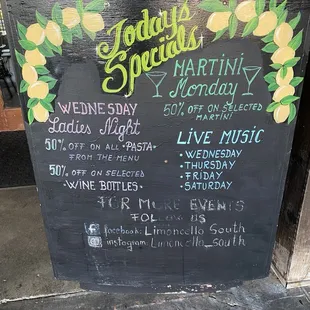 Todays
Specials
MARTINI
Monday
50% OFF ON SELECTED
MARTINI
WEDNESDAY
Ladies Night
50% OFF ON ALL •PASTA•
FROM THE MENU
50% OFF ON SELECTED
•WINE BOTTLES•
LIVE MUSIC
• WEDNESDAY
• THURSDAY
• FRIDAY
• SATURDAY
FOR MORE EVENTS
FOLLOW US
facebook: Limoncello South
instagram: Limoncello_south